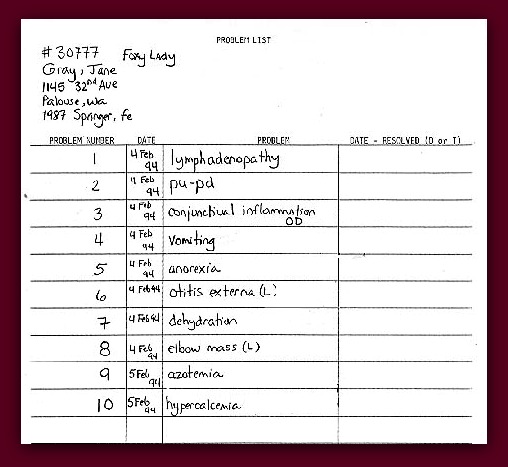 PROBLEM LIST
# 30777 Foxy Lady
Gray, Jane
1145 32nd Ave
Palouse, wa
1987 Springer, fe
PROBLEM NUMBER DATE PROBLEM DATE - RESOLVED (D or T)
1 4 Feb 94 lymphadenopathy
2 4 Feb 94 pu-pd
3 4 Feb 94 conjunctival inflammation OD
4 4 Feb 94 vomiting
5 4 Feb 94 anorexia
6 4 Feb 94 otitis externa (L)
7 4 Feb 94 dehydration
8 4 Feb 94 elbow mass (L)
9 5 Feb 94 azotemia
10 5 Feb 94 hypercalcemia